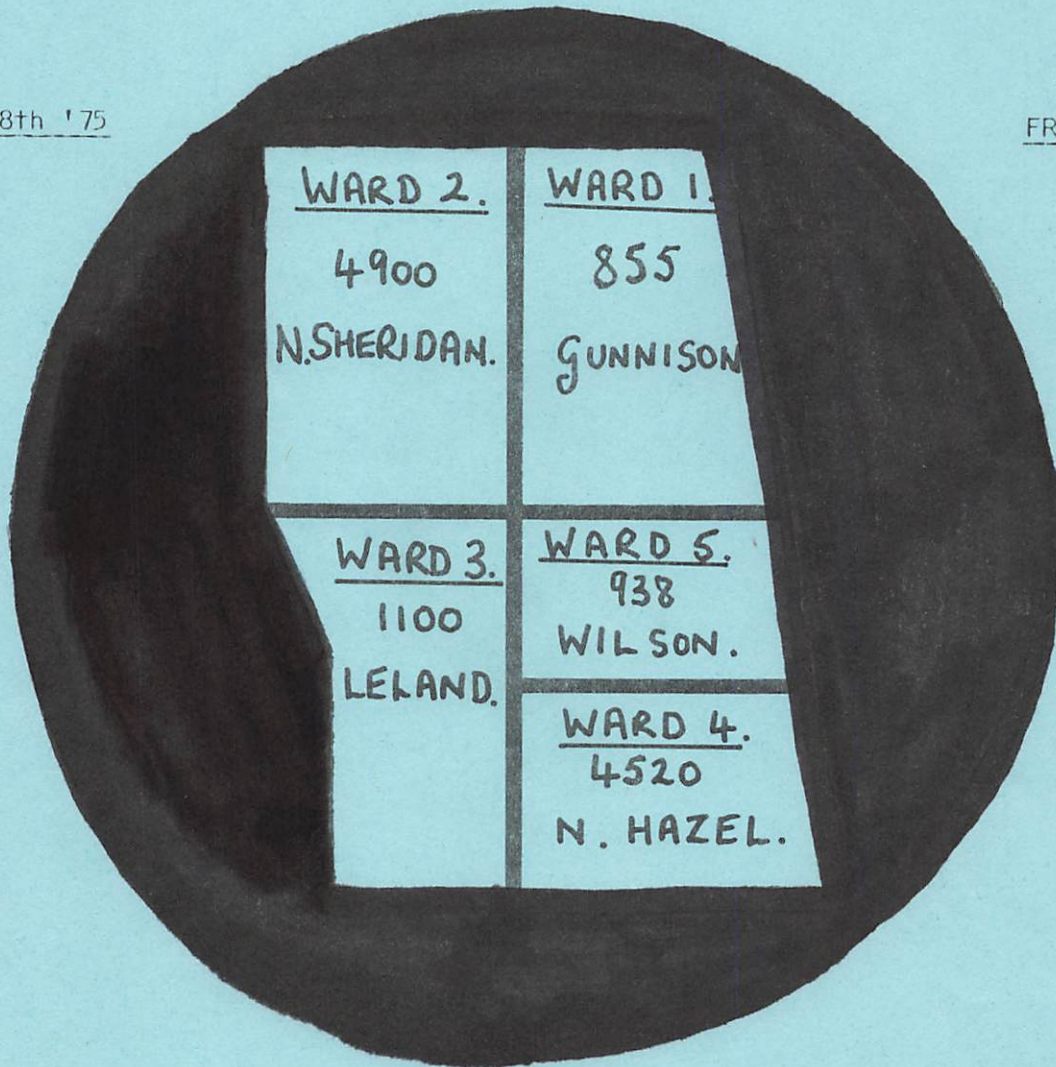 8th '75
FR
WARD 2.
4900
N.SHERIDAN.
WARD 1.
855
GUNNISON
WARD 3.
1100
LELAND.
WARD 5.
938
WILSON.
WARD 4.
4520
N. HAZEL.